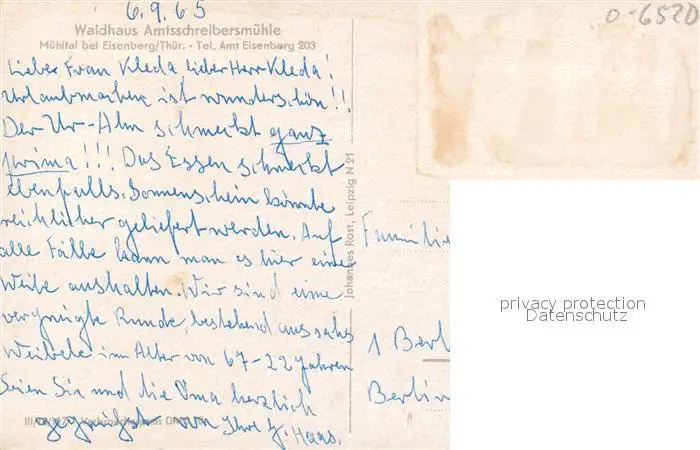 6.9.65
Waldhaus Amtsschreibersmühle
Mühltal bei Eisenberg/Thür. - Tel. Amt Eisenberg 203
Lieber Frau Kleda lieber Herr Kleda!
Urlaubmachen ist wunderschön!!
Der Ur-Alm schmeckt ganz
prima!!! Das Essen schmeckt
ebenfalls. Sonnenschein könnte
reichlicher geliefert werden. Auf
alle Fälle kann man es hier eine
Weile aushalten. Wir sind eine
vergnügte Runde, bestehend aus sechs
Weibele im Alter von 67-22 Jahren
Seien Sie und die Oma herzlich
gegrüßt von Ihre J. Haas.
Johannes Rost, Leipzig N 21
0-6520
Familie
1 Berl
Berlin
privacy protection
Datenschutz